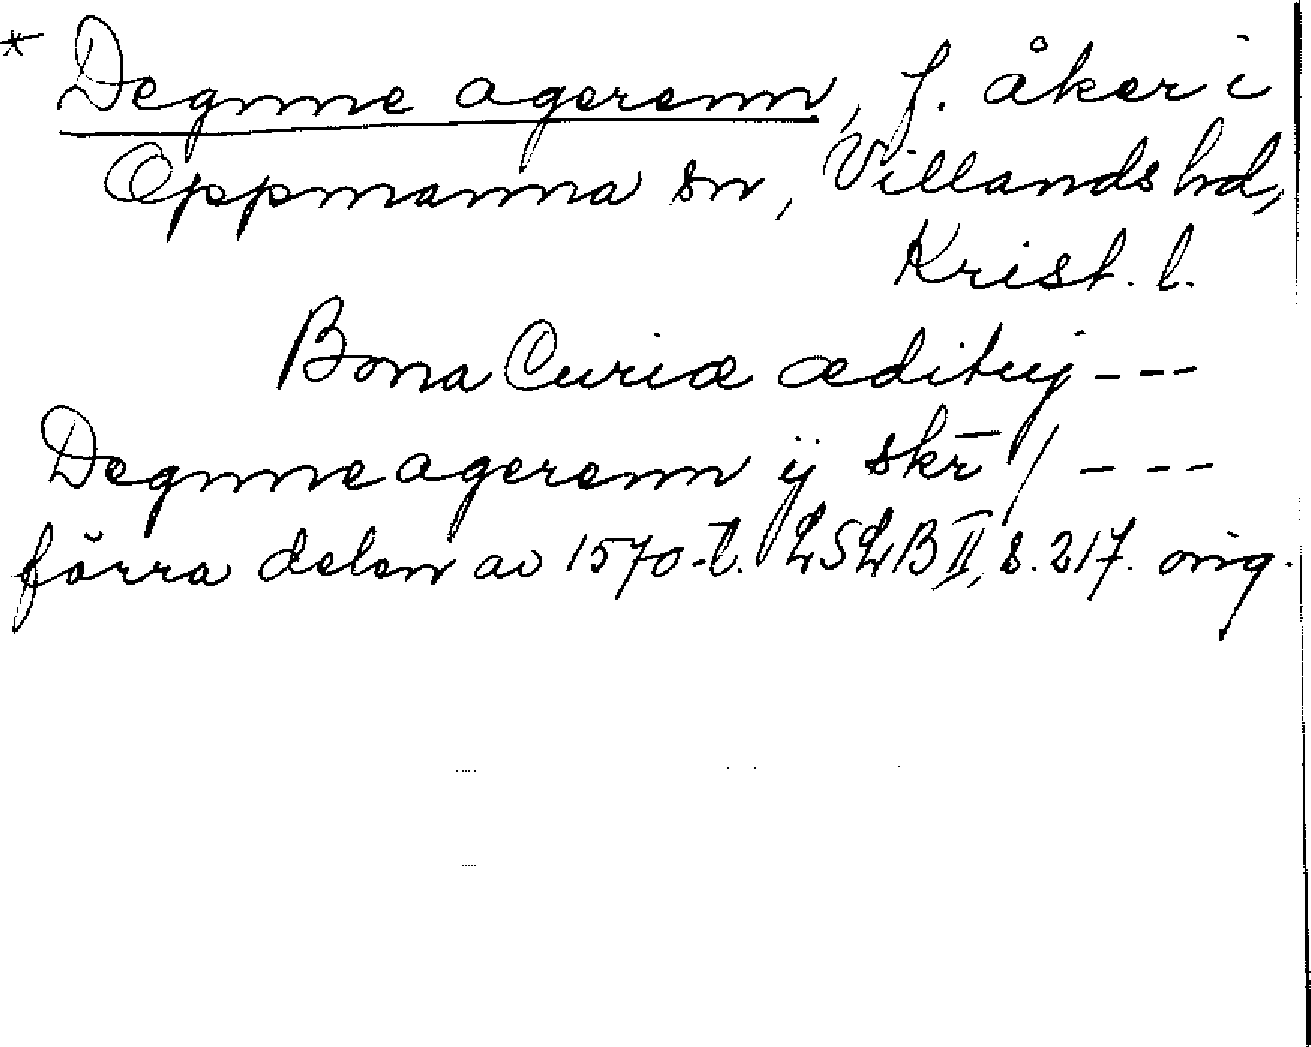 * Degnne agerenn, f. åker i
Oppmanna sn, Villands hd,
Krist. l.
Bona Curiæ ædituj ---
Degnneagerenn ij skr̄ / ---
förra delen av 1570-t. LSLB II, s. 217. orig.